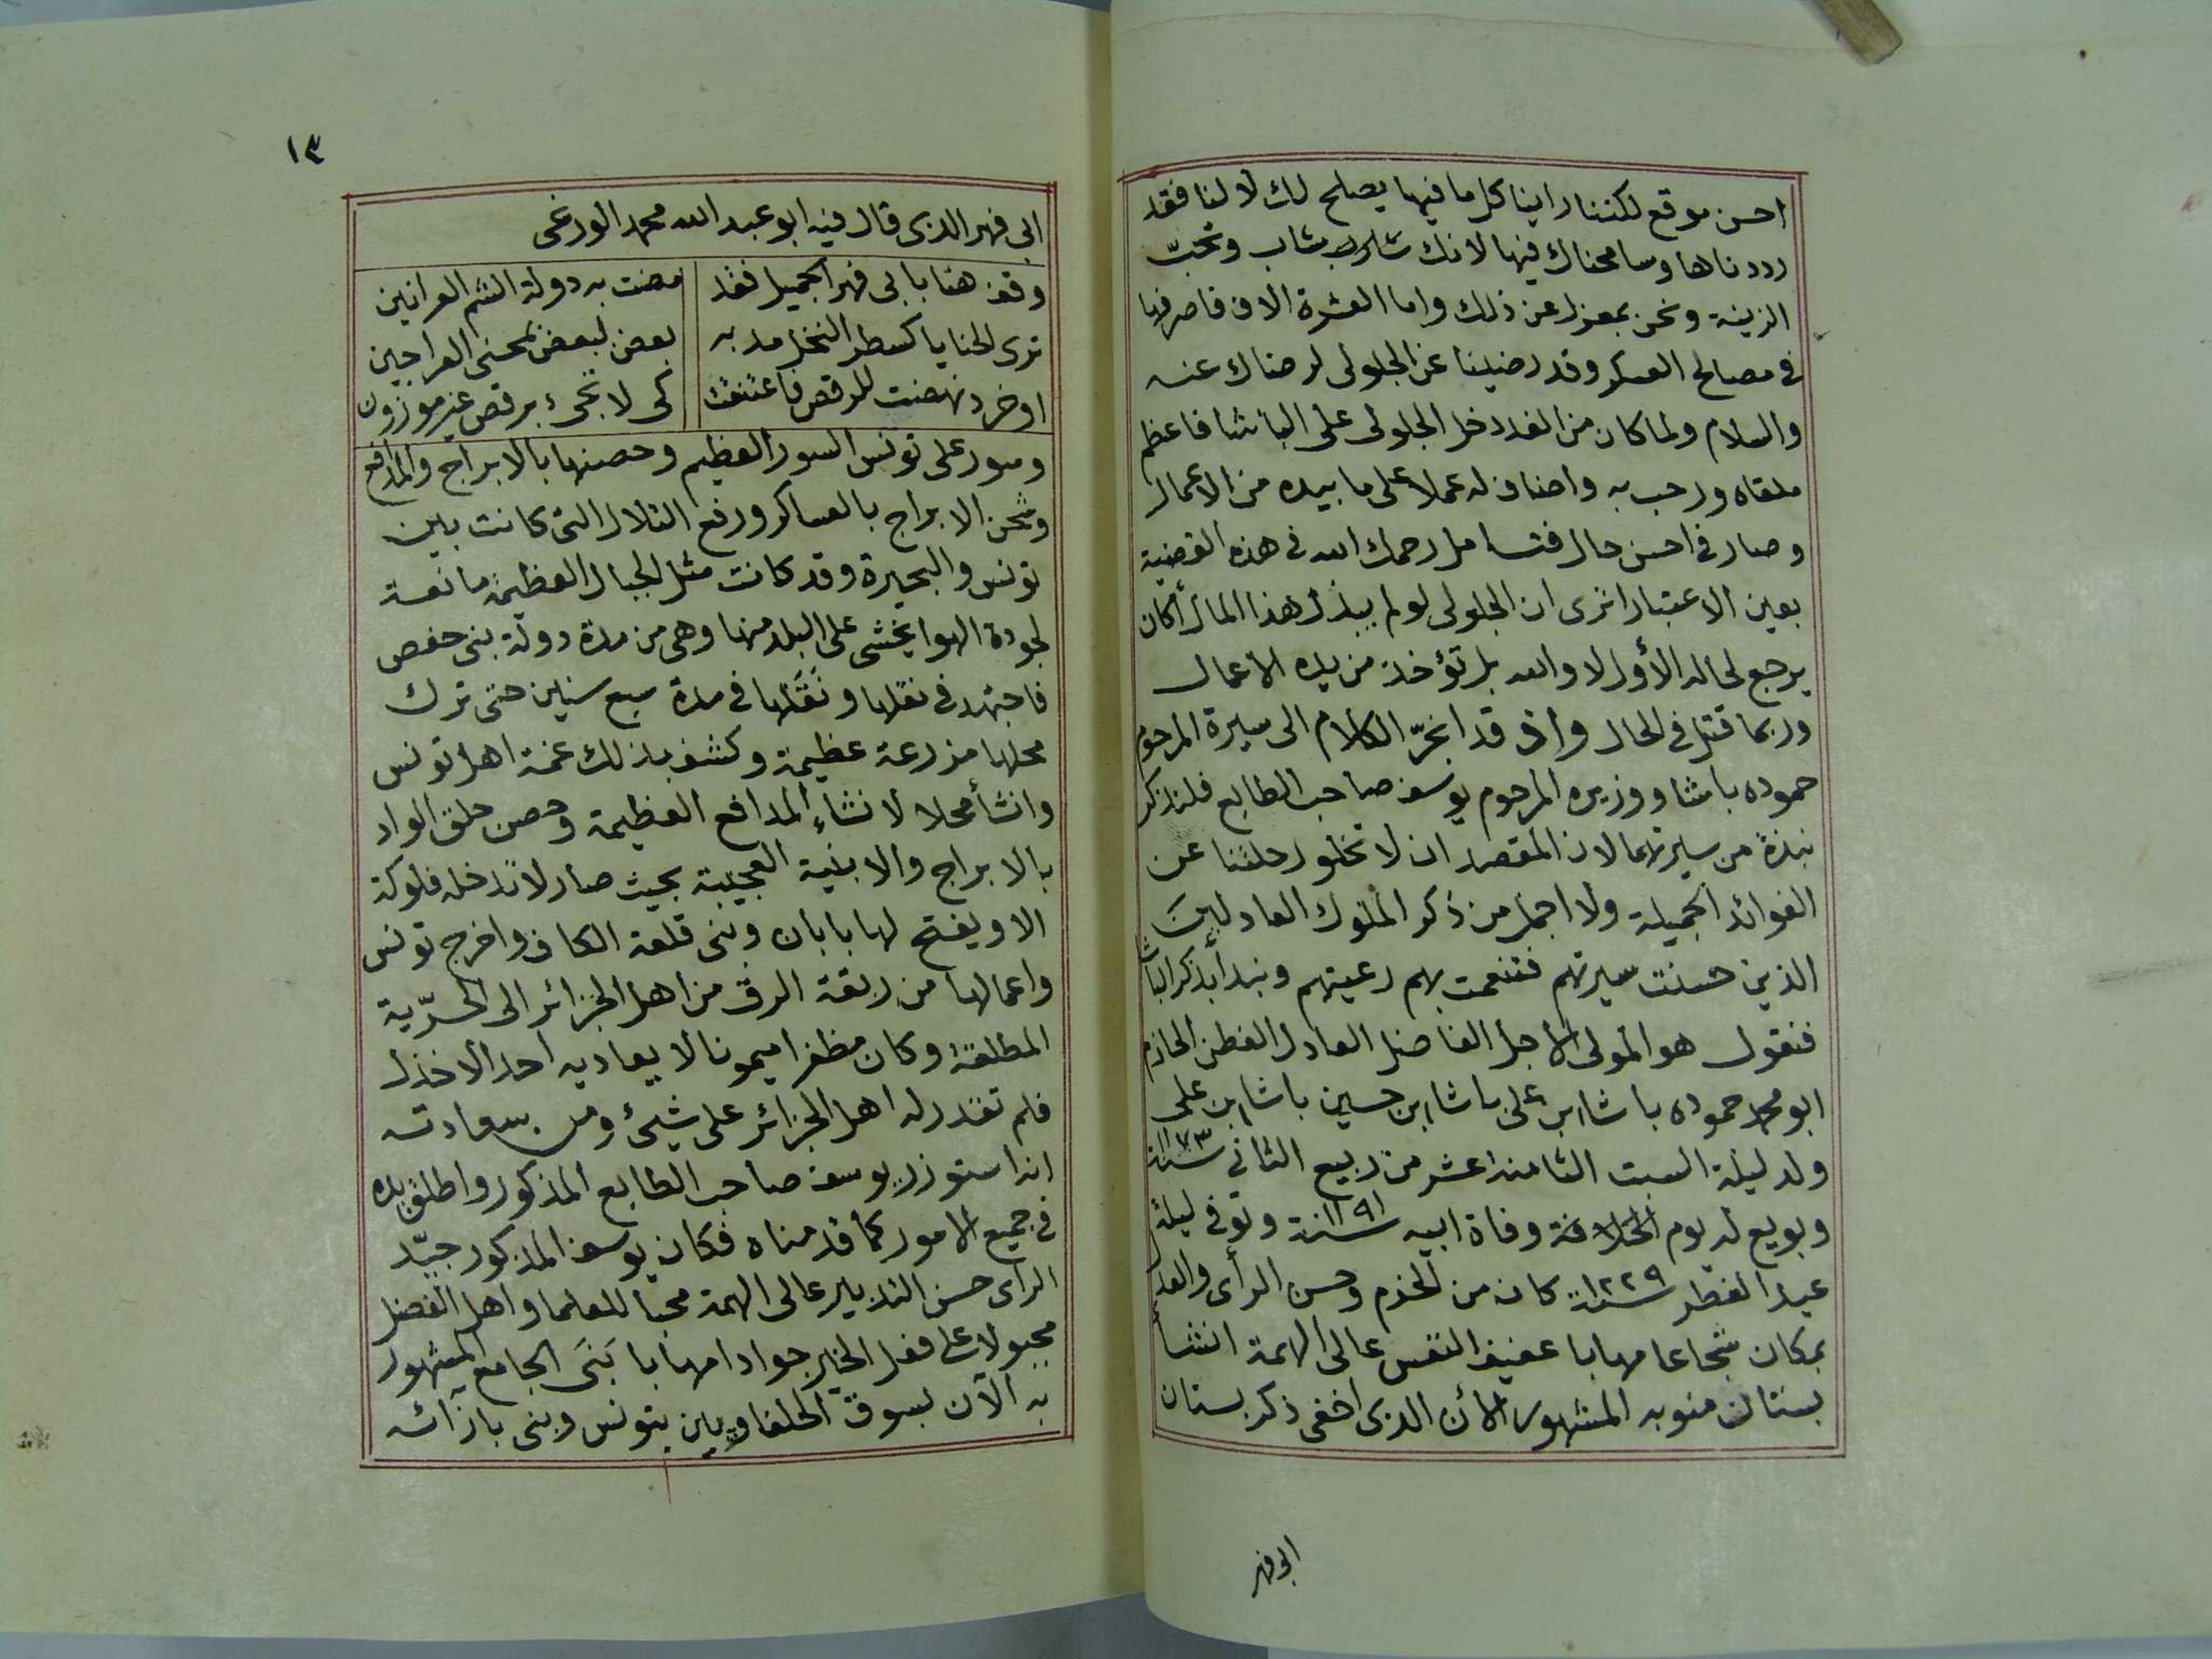 احسن موقع لكننا راينا كل ما فيها يصلح لك لا لنا فقد
رددناها وسامحناك فيها لانك شارب شاب وتحبّ
الزينة ونحن بمعزل عن ذلك واما العشرة الاف فاصرفها
فى مصالح العسكر وقد رضينا عن الجلولى لرضاك عنه
والسلام ولما كان من الغد دخل الجلولى على الباشا فاعظم
ملقاه ورحب به واضاف له عملا على ما بيده من الاعمال
وصار فى احسن حال فتامل رحمك الله فى هذه القضية
بعين الاعتبار اترى ان الجلولى لو لم يبذل هذا المال أكان
يرجع لحاله الأول لا والله بل تؤخذ من يده الاعمال
وربما قتل فى الحال واذ قد انجرّ الكلام الى سيرة المرحوم
حموده باشا ووزيره المرحوم يوسف صاحب الطابع فلنذكر
نبذة من سيرتهما لان المقصد ان لا تخلو رحلتنا عن
الفوائد الجميلة ولا اجمل من ذكر الملوك العادلينَ
الذين حسنت سيرتهم فتنعمت بهم رعيتهم ونبدأ بذكر الباشا
فنقول هو المولى الاجل الفاضل العادل الفطن الحازم
ابو محمد حموده باشا ابن على باشا ابن حسين باشا ابن على
ولد ليلة السبت الثامنة عشر من ربيع الثانى سنة ١١٧٣
وبويع له يوم الخلافة وفاة ابيه سنة ١١٩١ وتوفى ليلة
عيد الفطر سنة ١٢٢٩ كان من الحزم وحسن الرأى والعدل
بمكان شجاعا مهابا عفيف النفس عالى الهمة انشأ
بستان منوبه المشهور الأن الذى اخفى ذكر بستان
ابى فهر
١٣
ابى فهر الذى قال فيه ابو عبد الله محمد الورغى
وقف هنا بابى فهر الجميل فقد مضت به دولة الشم العرانين
ترى الحنايا كسطر النخل مد به بعض لبعض بمحنى العراجين
او خرد نهضت للرقص فاعتنقت كى لا تجىء برقص غير موزون
وسور على تونس السور العظيم وحصنها بالابراج والمدافع
وشحن الابراج بالعساكر ورفع التلال التى كانت بين
تونس والبحيرة وقد كانت مثل الجبال العظيمة مانعة
لجودة الهوا يخشى على البلد منها وهى من مدة دولة بنى حفص
فاجتهد فى نقلها ونَقَلها فى مدة سبع سنين حتى ترك
محلها مزرعة عظيمة وكشف بذلك غمة اهل تونس
وانشأ محلا لانشاء المدافع العظيمة وحصن حلق الواد
بالابراج والابنية العجيبة بحيث صار لا تدخله فلوكة
الا ويفتح لها بابان وبنى قلعة الكاف واخرج تونس
واعمالها من ربقة الرق من اهل الجزائر الى الحرّية
المطلقة وكان مظفرا ميمونا لا يعاديه احد الا خذل
فلم تقدر له اهل الجزائر على شيئ ومن سعادته
انه استوزر يوسف صاحب الطابع المذكور واطلق يده
فى جميع الامور كما قدمناه فكان يوسف المذكور جيّد
الراى حسن التدبير عالى الهمة محبا للعلما واهل الفضل
مجبولا على فعل الخير جوادا مهابا بَنَى الجامع المشهور
به الآن بسوق الحلفاويين بتونس وبنى بازائه